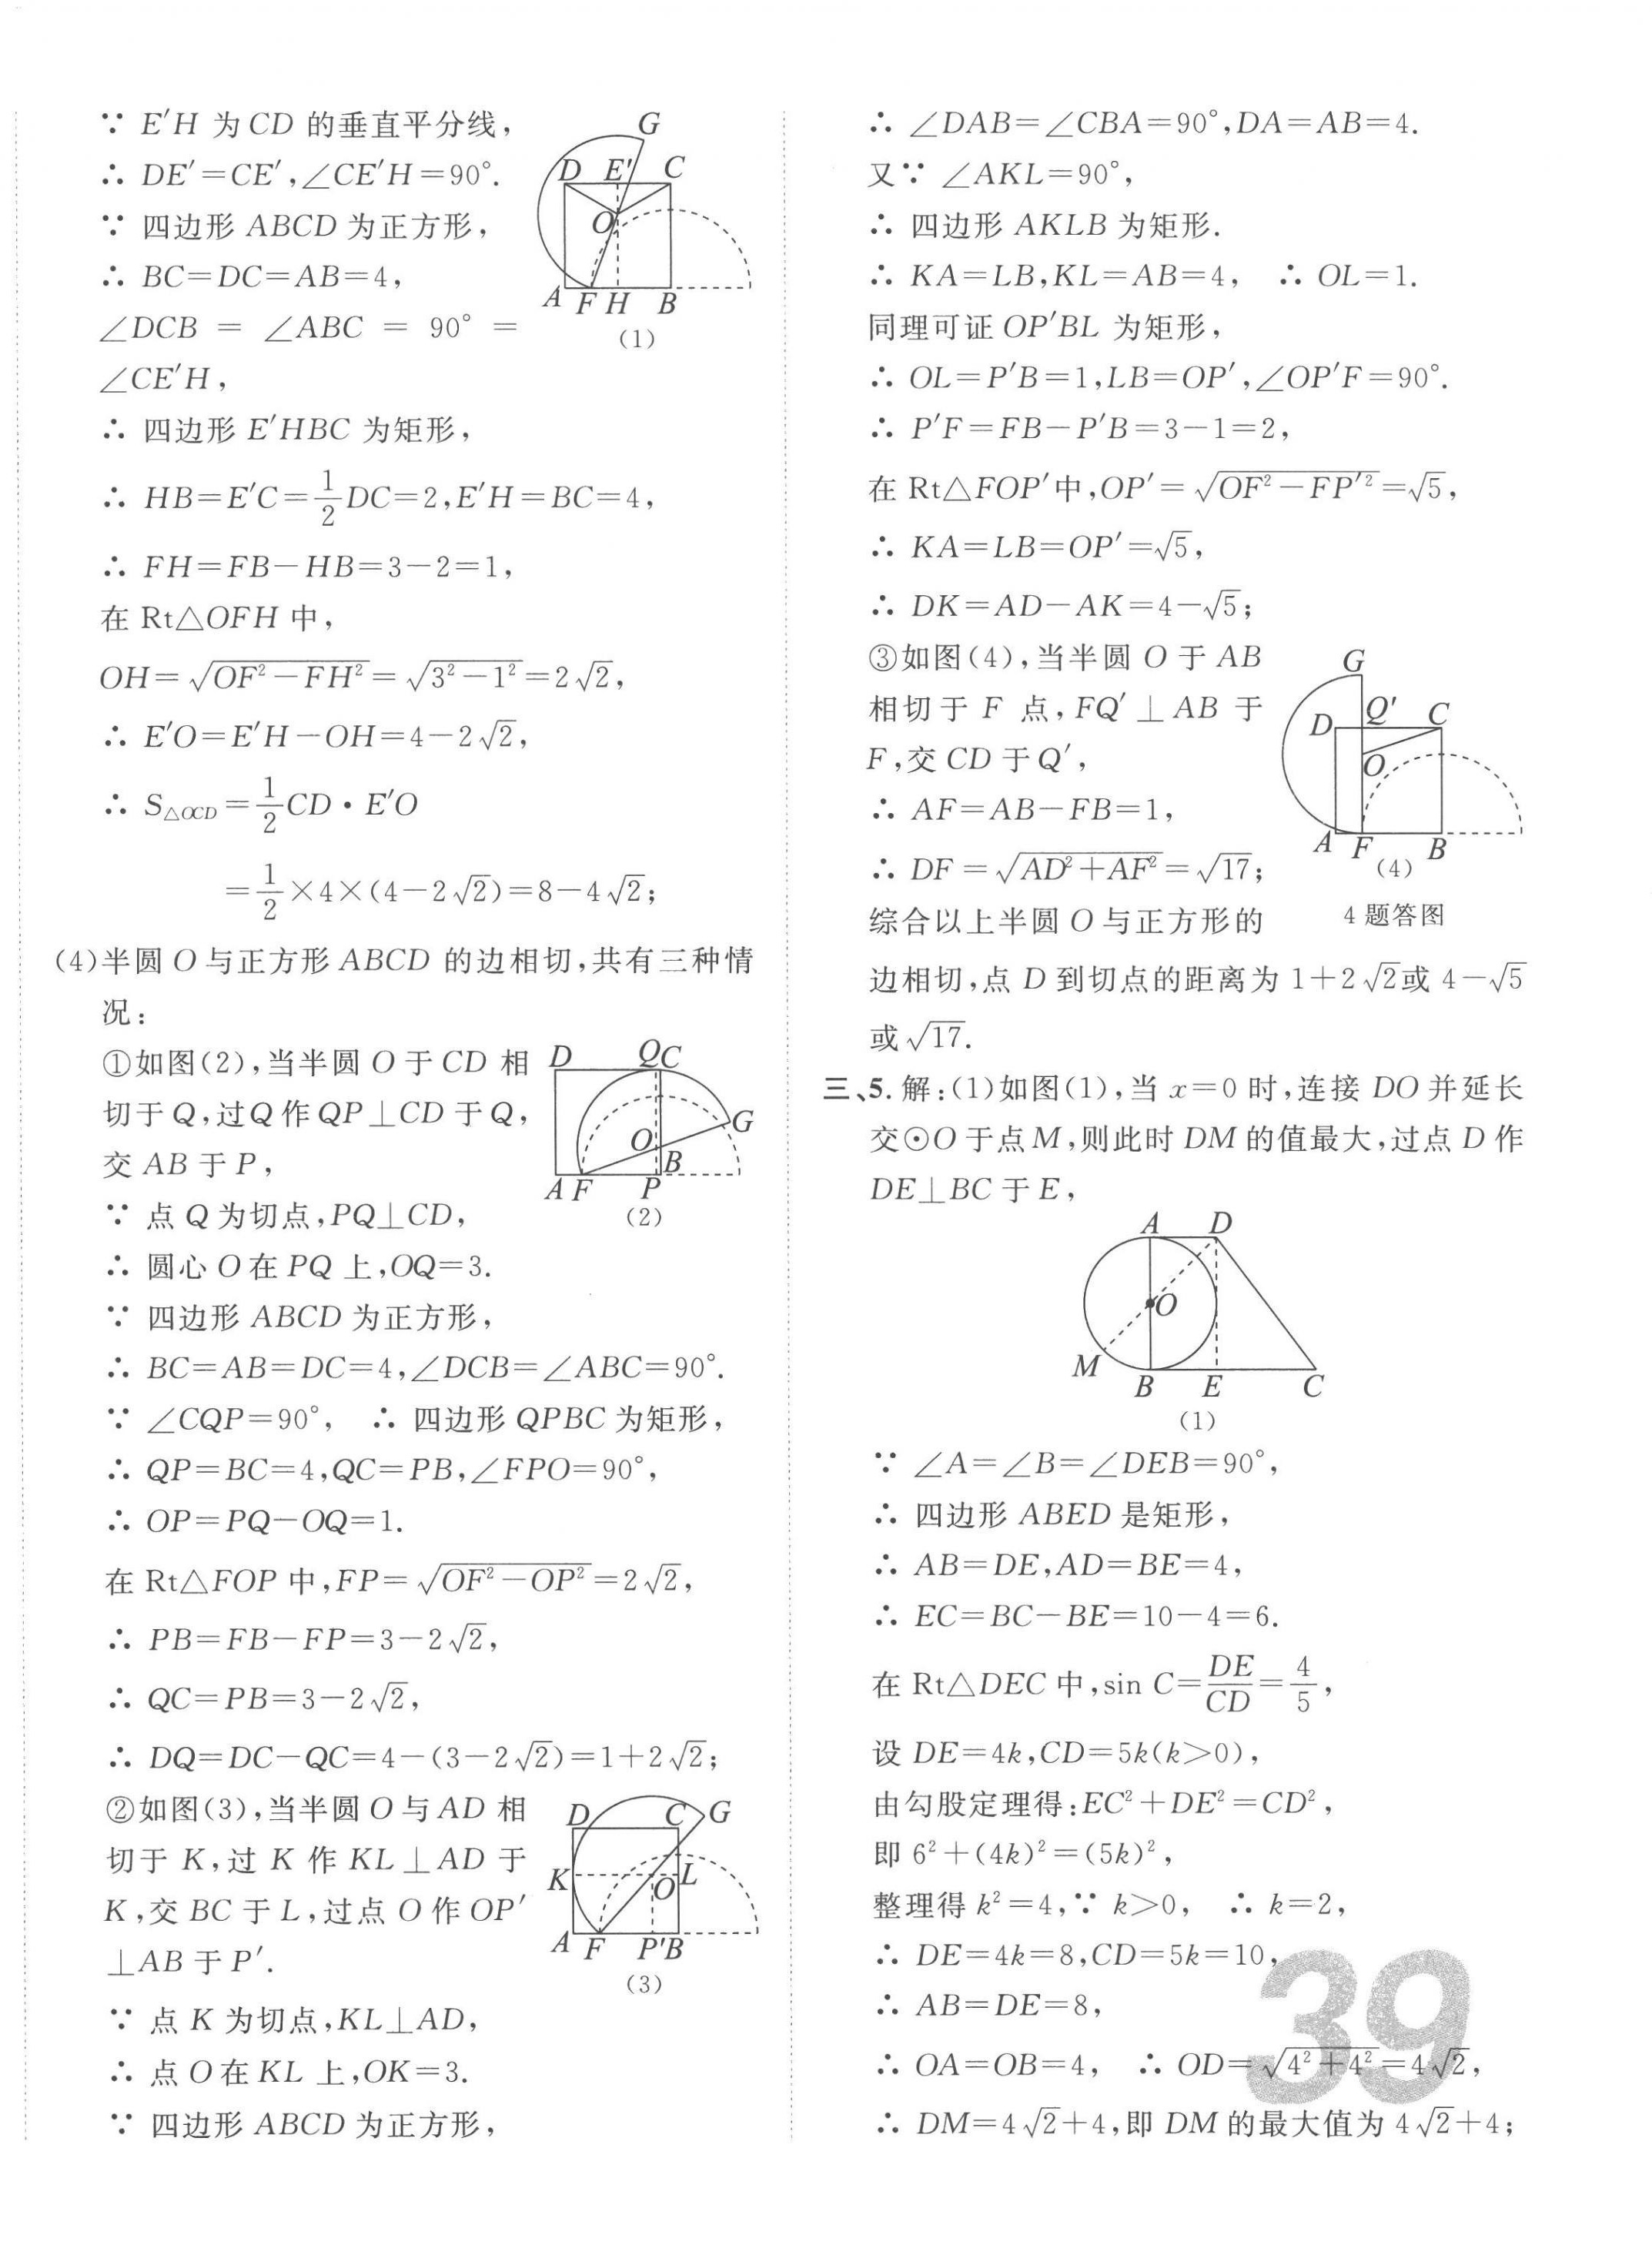 ∵ E′H 为 CD 的垂直平分线,
∴ DE′=CE′,∠CE′H=90°.
∵ 四边形 ABCD 为正方形,
∴ BC=DC=AB=4,
∠DCB = ∠ABC = 90° =
∠CE′H,
∴ 四边形 E′HBC 为矩形,
∴ HB=E′C=1/2DC=2,E′H=BC=4,
∴ FH=FB−HB=3−2=1,
在 Rt△OFH 中,
OH=√(OF²−FH²)=√(3²−1²)=2√2,
∴ E′O=E′H−OH=4−2√2,
∴ S△OCD=1/2CD·E′O
=1/2×4×(4−2√2)=8−4√2;
G
D E′ C
O
A F H B
(1)
(4)半圆 O 与正方形 ABCD 的边相切,共有三种情
况:
①如图(2),当半圆 O 于 CD 相
切于 Q,过 Q 作 QP⊥CD 于 Q,
交 AB 于 P,
∵ 点 Q 为切点,PQ⊥CD,
D Q C
G
O
B
A F P
(2)
∴ 圆心 O 在 PQ 上,OQ=3.
∵ 四边形 ABCD 为正方形,
∴ BC=AB=DC=4,∠DCB=∠ABC=90°.
∵ ∠CQP=90°, ∴ 四边形 QPBC 为矩形,
∴ QP=BC=4,QC=PB,∠FPO=90°,
∴ OP=PQ−OQ=1.
在 Rt△FOP 中,FP=√(OF²−OP²)=2√2,
∴ PB=FB−FP=3−2√2,
∴ QC=PB=3−2√2,
∴ DQ=DC−QC=4−(3−2√2)=1+2√2;
②如图(3),当半圆 O 与 AD 相
切于 K,过 K 作 KL⊥AD 于
K,交 BC 于 L,过点 O 作 OP′
⊥AB 于 P′.
D C G
K O L
A F P′B
(3)
∵ 点 K 为切点,KL⊥AD,
∴ 点 O 在 KL 上,OK=3.
∵ 四边形 ABCD 为正方形,
∴ ∠DAB=∠CBA=90°,DA=AB=4.
又∵ ∠AKL=90°,
∴ 四边形 AKLB 为矩形.
∴ KA=LB,KL=AB=4, ∴ OL=1.
同理可证 OP′BL 为矩形,
∴ OL=P′B=1,LB=OP′,∠OP′F=90°.
∴ P′F=FB−P′B=3−1=2,
在 Rt△FOP′中,OP′=√(OF²−FP′²)=√5,
∴ KA=LB=OP′=√5,
∴ DK=AD−AK=4−√5;
③如图(4),当半圆 O 于 AB
相切于 F 点,FQ′⊥AB 于
F,交 CD 于 Q′,
∴ AF=AB−FB=1,
∴ DF=√(AD²+AF²)=√17;
G
D Q′ C
O
A F B
(4)
4 题答图
综合以上半圆 O 与正方形的
边相切,点 D 到切点的距离为 1+2√2或 4−√5
或√17.
三、5. 解:(1)如图(1),当 x=0 时,连接 DO 并延长
交⊙O 于点 M,则此时 DM 的值最大,过点 D 作
DE⊥BC 于 E,
A D
O
M
B E C
(1)
∵ ∠A=∠B=∠DEB=90°,
∴ 四边形 ABED 是矩形,
∴ AB=DE,AD=BE=4,
∴ EC=BC−BE=10−4=6.
在 Rt△DEC 中,sin C=DE/CD=4/5,
设 DE=4k,CD=5k(k>0),
由勾股定理得:EC²+DE²=CD²,
即 6²+(4k)²=(5k)²,
整理得 k²=4,∵ k>0, ∴ k=2,
∴ DE=4k=8,CD=5k=10,
∴ AB=DE=8,
∴ OA=OB=4, ∴ OD=√(4²+4²)=4√2,
∴ DM=4√2+4,即 DM 的最大值为 4√2+4;
39